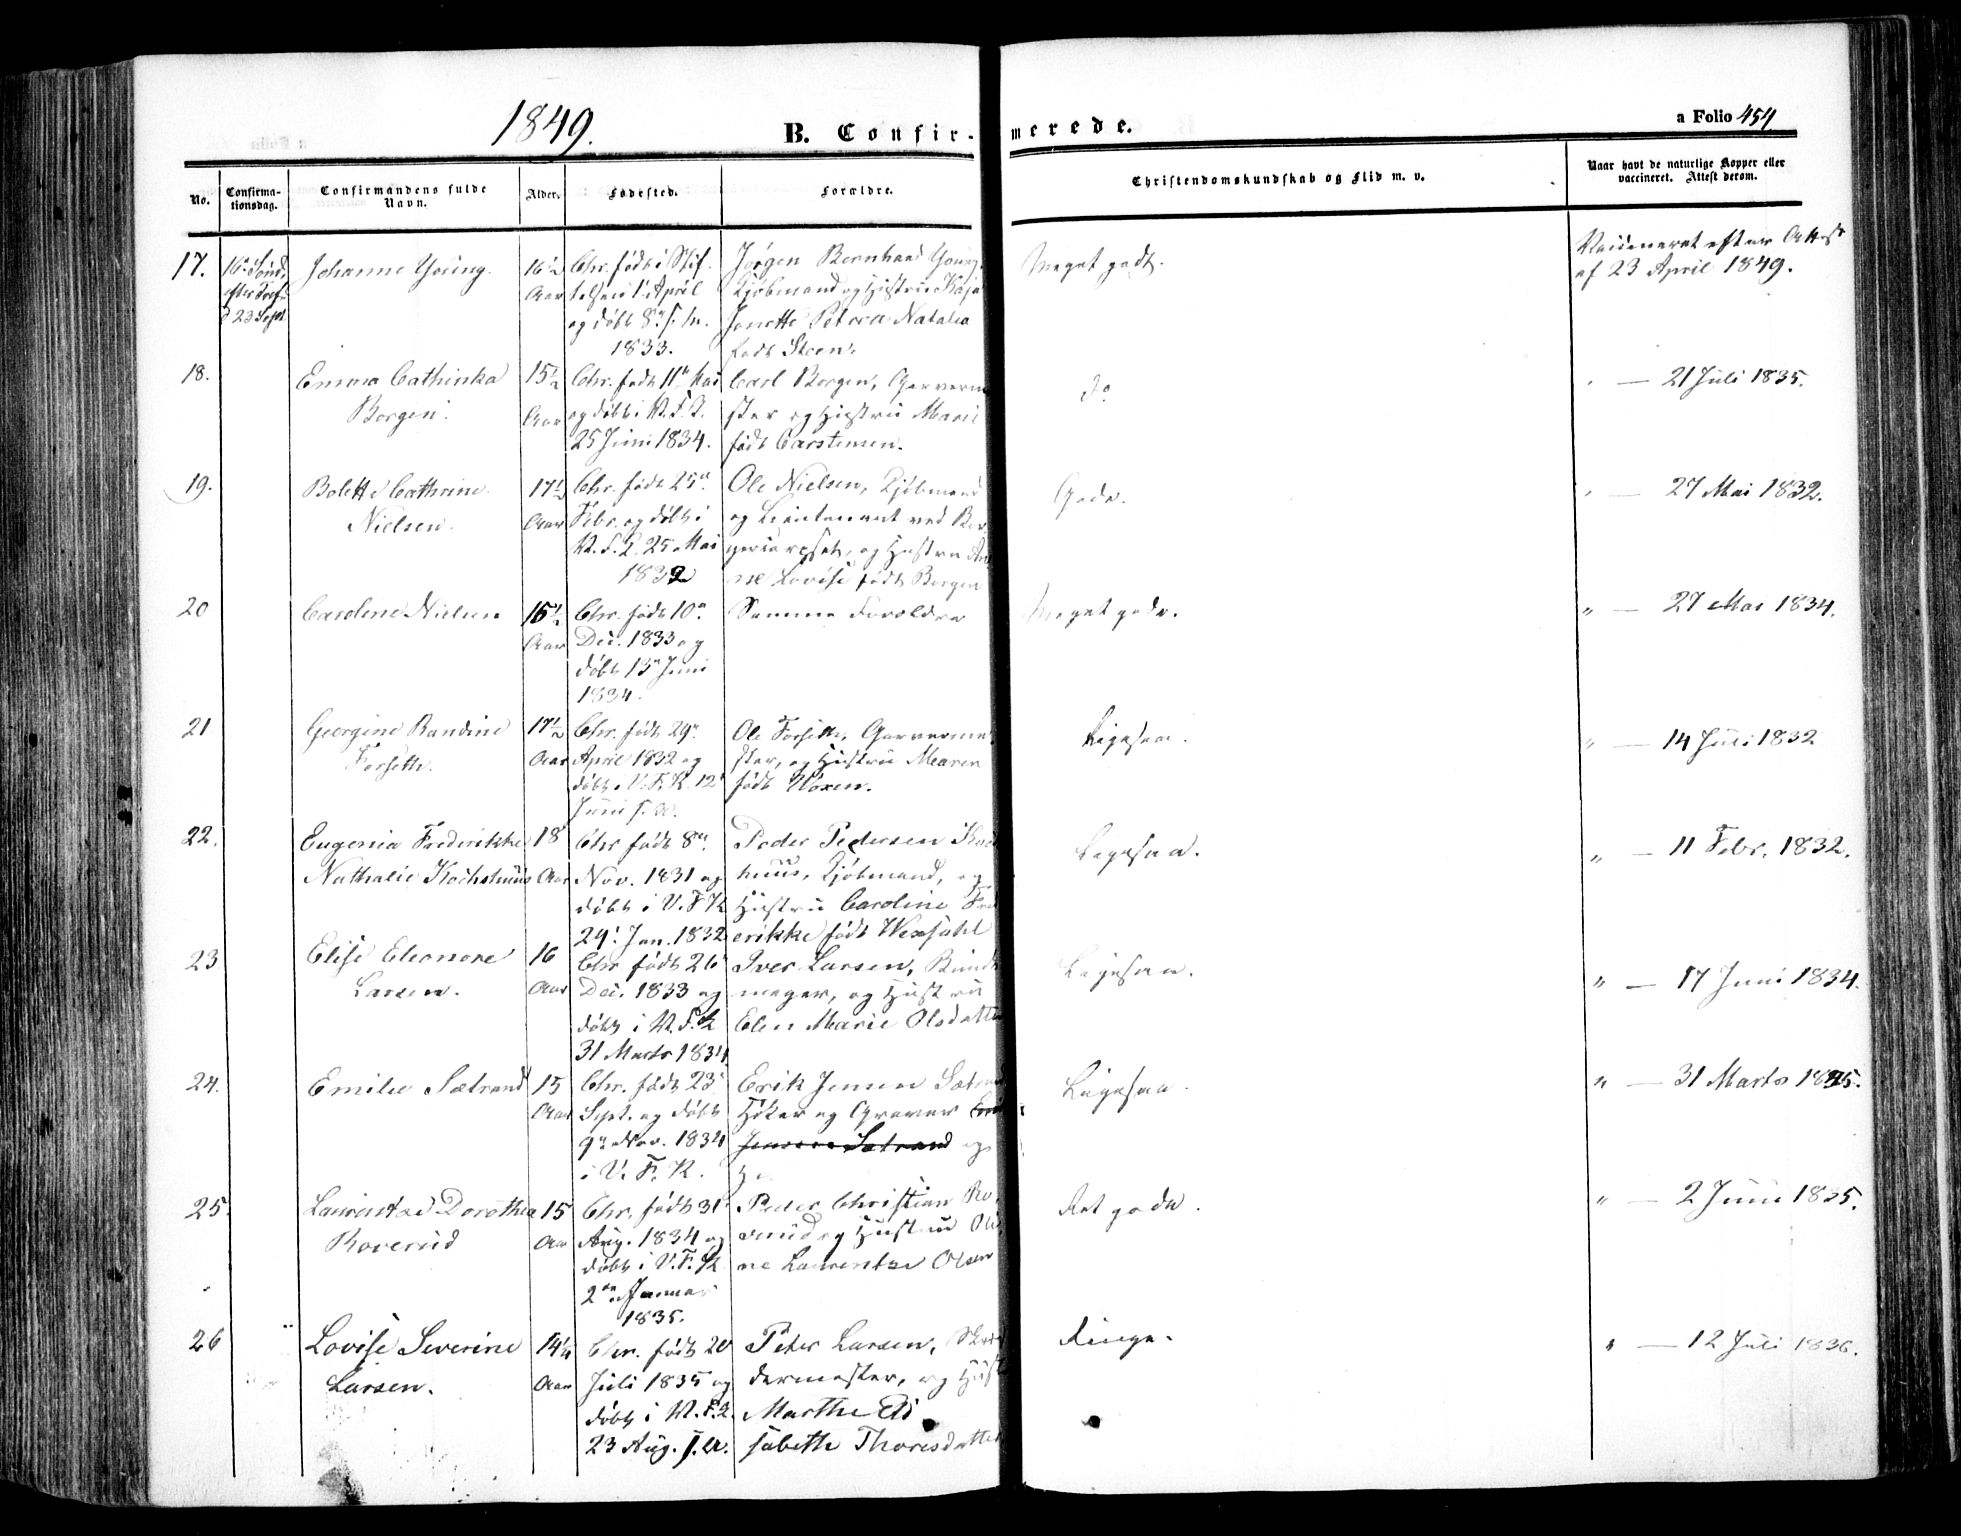 1849.
B. Confir-
merede.
a Folio 454
No.
Confirma-
tionsdag.
Confirmandens fulde
Navn.
Alder.
Fødested.
Forældre.
Christendomskundskab og Flid m. v.
Naar havt de naturlige Kopper eller
vaccineret. Attest derom.
17.
16de Sønd.
efter Tref.
d 23 Sept
Johanne Young.
16½
Aar
Chr. født i Stif-
telsen 1 April
og døbt 8de s. M.
1833.
Jørgen Bernhard Young,
Kjøbmand og Hustru Kaja
Jonette Petrea Natalia
født Steen.
Meget godt.
Vaccineret efter Attest
af 23 April 1849.
18.
Emma Cathinka
Borgen.
15½
Aar
Chr. født 11te Mai
og døbt i
25 Juni 1834.
Carl Borgen, Garverme
ster og Hustru Marie
født Carstensen.
do
" — 21 Juli 1835.
19.
Bolette Cathrine
Nielsen.
17½
Aar
Chr. født 25de
Febr. og døbt i
V. F. K. 25 Mai
1832
Ole Nielsen, Kjøbmand
og Lieutenant ved Bor
gercorpset, og Hustru An
ne Lovise født Borgen
Godt.
" — 27 Mai 1832.
20
Caroline Nielsen
15½
Aar
Chr. født 10de
Dec. 1833 og
døbt 13de Juni
1834.
Samme Forældre
Meget godt.
" — 27 Mai 1834.
21
Georgine Randine
Forseth.
17½
Aar
Chr. født 29de
April 1832 og
døbt i V. F. K. 12te
Juni s. A.
Ole Forseth, Garverme
ster, og Hustru Maren
født
Ligesaa.
" — 14 Juli 1832
22.
Eugenia Frederikke
Nathalie Kochshuus
18
Aar
Chr født 8de
Nov. 1831 og
døbt i V. F K
29 Jan. 1832
Peder Pedersen Koch
huus, Kjøbmand, og
Hustru Caroline Fred
erikke født Wessahl
Ligesaa.
" — 11 Febr. 1832.
23
Elise Eleonore
Larsen.
16
Aar
Chr. født 26
Dec. 1833 og
døbt i V. F. K
31 Marts 1834
Iver Larsen, Bundt
mager, og Hustru
Elen Marie Olsdatter
Ligesaa.
" — 17 Juni 1834.
24.
Emilie Sætrand
15
Aar
Chr. født 23
Sept. og døbt
9de Nov. 1834
i V. F. K.
Erik Jensen Sætrand
Høker og Graver Erik
Jensen Sætrand og
H
Ligesaa.
" — 31 Marts 1835.
25.
Laurentse Dorothea
Roverud
15
Aar
Chr. født 31
Aug. 1834 og
døbt i V. F. K
2den Januar
1835.
Peder Christian Ro-
verud og Hustru Oli
ne Laurentse Olsen
Ret godt.
" — 2 Juni 1835.
26
Lovise Severine
Larsen.
14¼
Aar
Chr. født 20
Juli 1835 og
døbt i V. F. K.
23 Aug. s. A.
Peter Larsen, Skræd
dermester, og Hust
Marthe Eli
sabeth Thoresdatter
Ringe.
" — 12 Juli 1836.